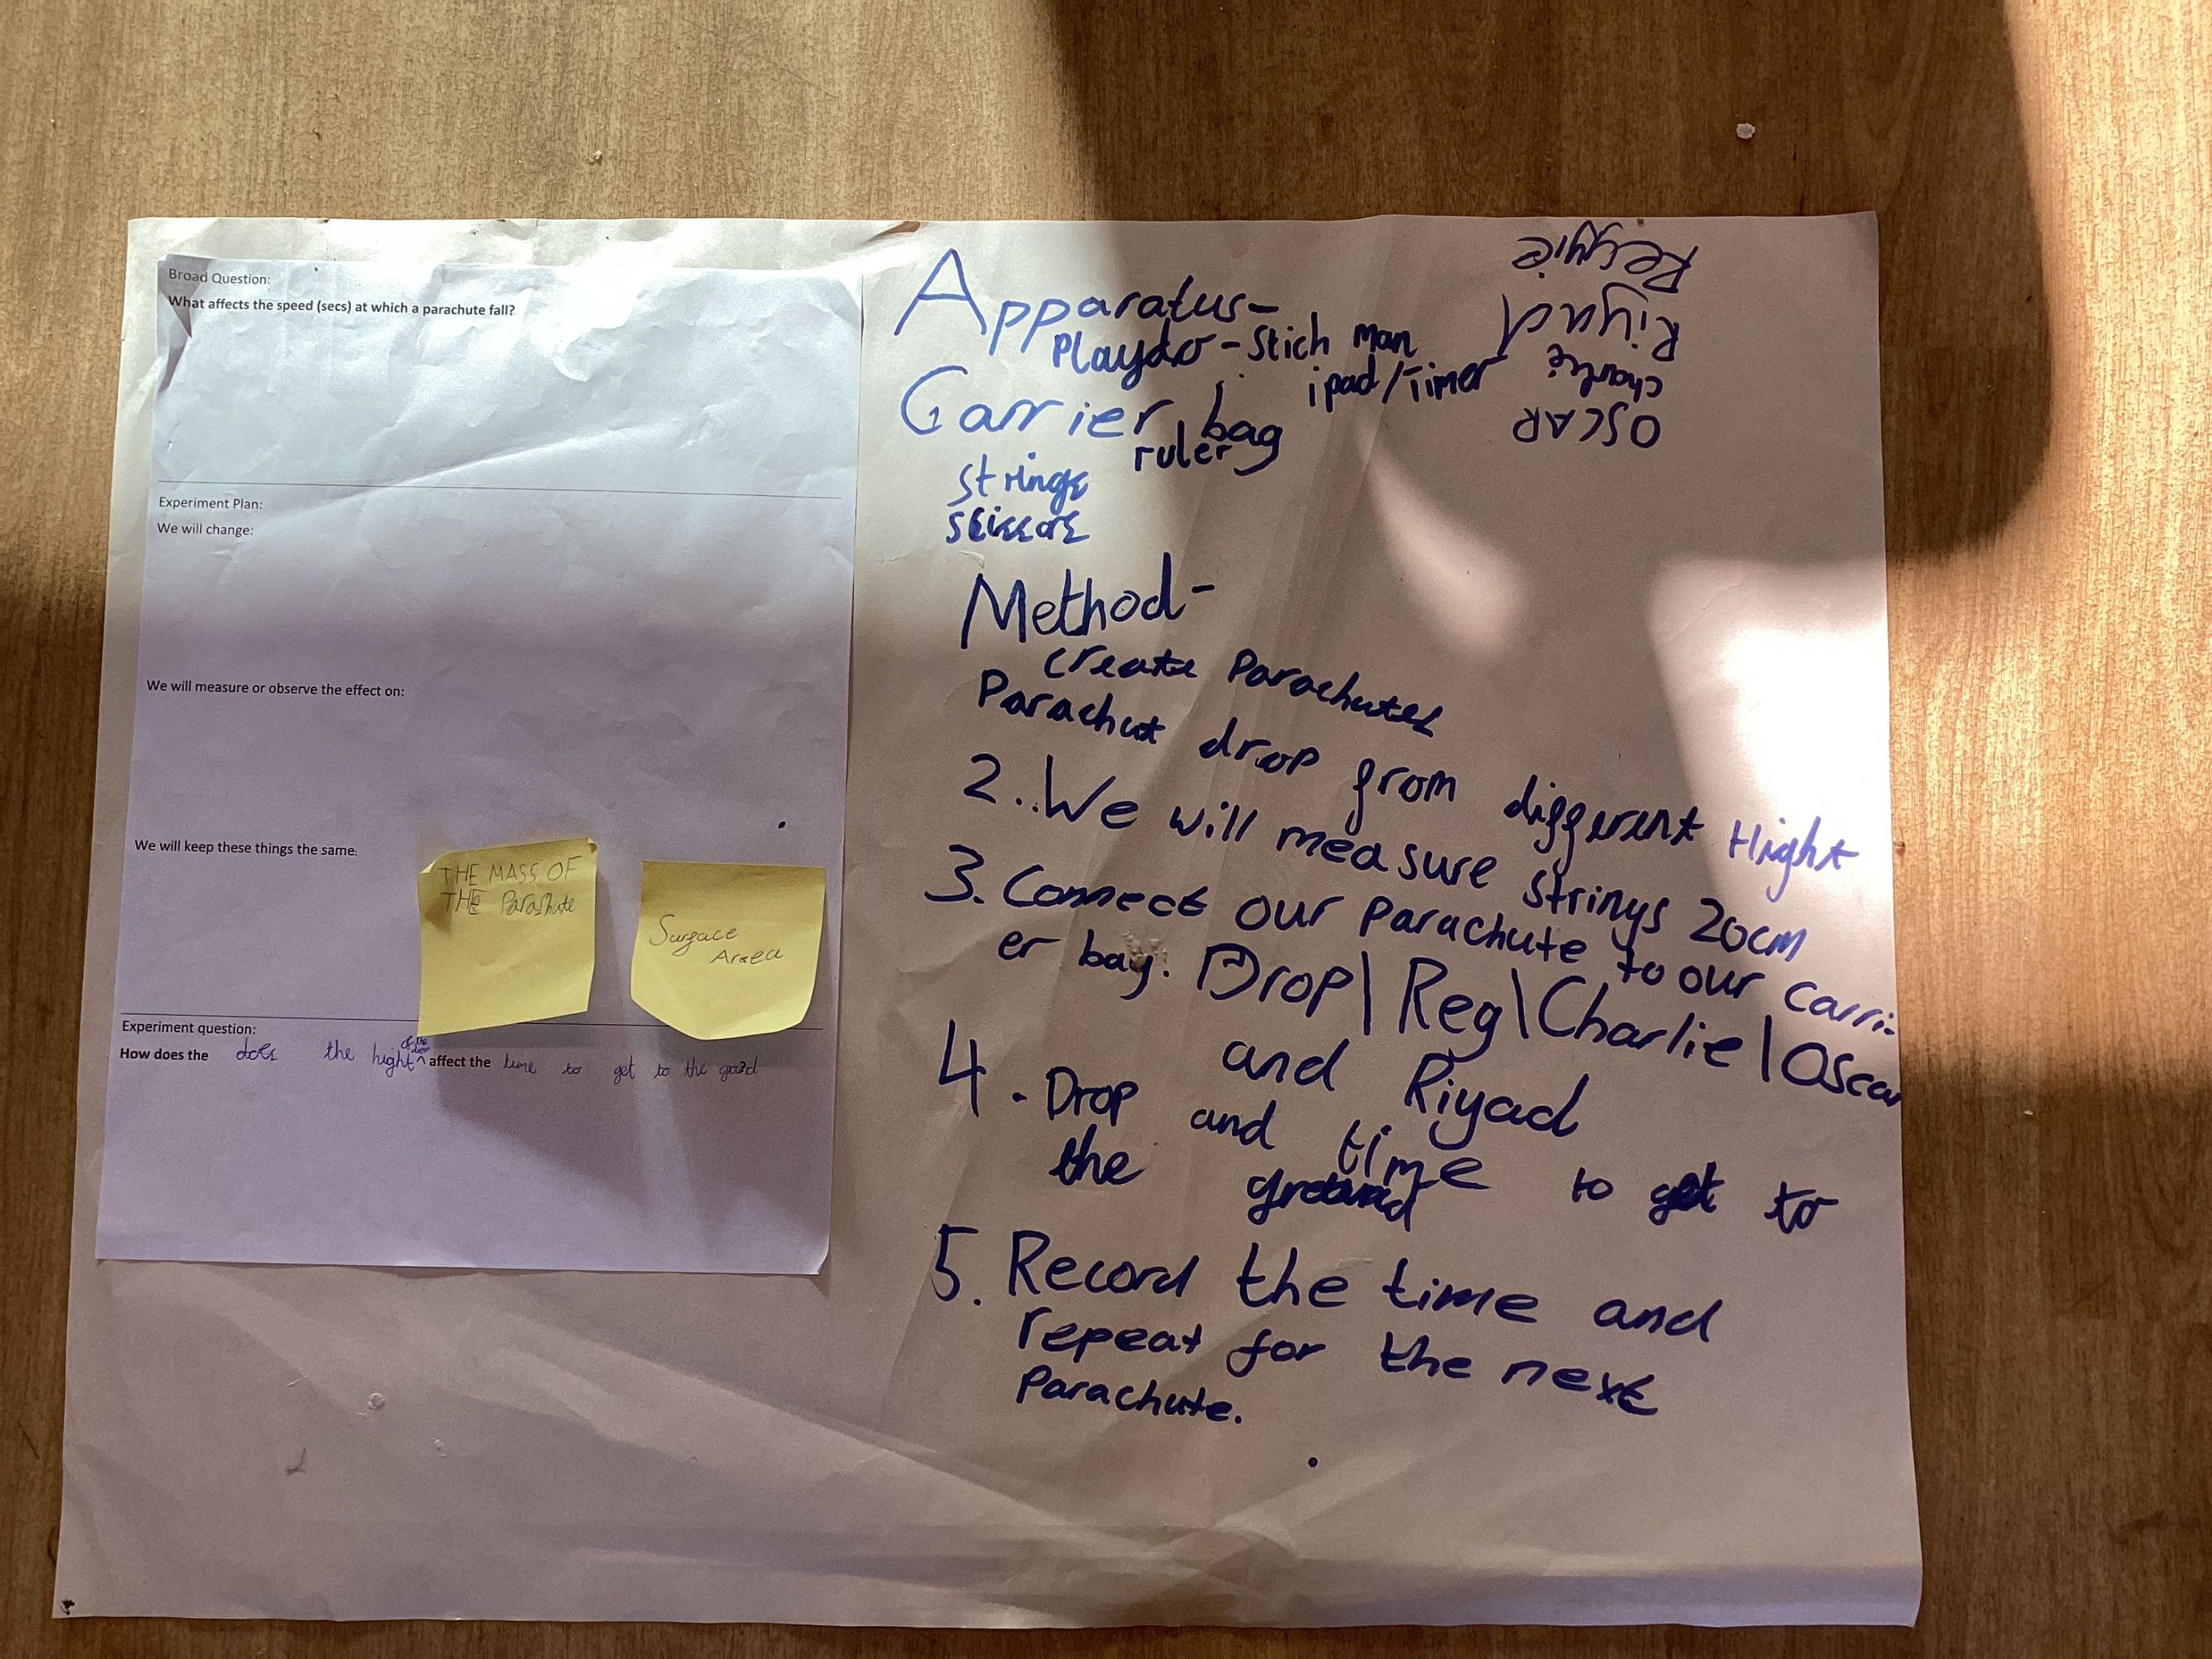 Broad Question:
What affects the speed (secs) at which a parachute fall?
Experiment Plan:
We will change:
We will measure or observe the effect on:
We will keep these things the same:
THE MASS OF
THE Parashute
Surface
Area
Experiment question:
How does the does the hight of the affect the time to get to the
Reggie
Riyad
charlie
OSCAR
Apparatus-
Playdo - Stich man
ipad/Timer
Carrier bag
ruler
strings
scissors
Method-
create Parachutes
Parachut drop from different Hight
2. We will measure strings 20cm
3. Connect our parachute to our carri-
er bag. Drop | Reg | Charlie | Oscar
and Riyad
4. Drop and time to get to
the ground
5. Record the time and
repeat for the next
Parachute.